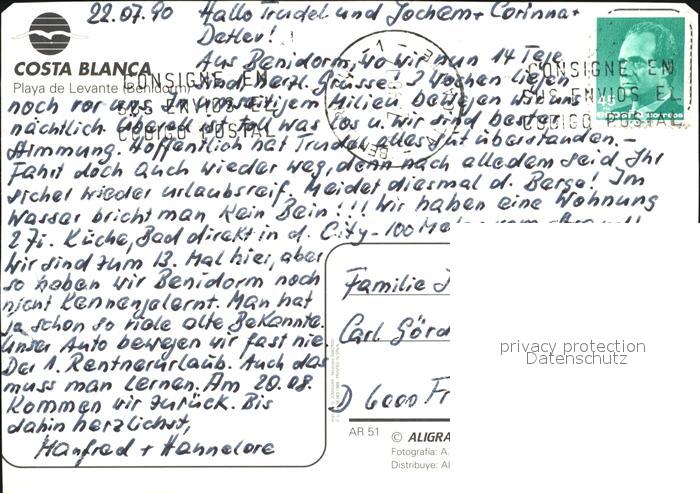 22.07.90 Hallo Trudel und Jochem + Corinna +
Detlev!
COSTA BLANCA
Playa de Levante (Benidorm)
Aus Benidorm, wo wir nun 14 Tage
sind herzl. Grüsse! 3 Wochen liegen
noch vor uns. In Milieu bewegen wir uns
nächtlich. Überall ist toll was los u. wir sind bester
Stimmung. Hoffentlich hat Trudel alles gut überstanden. –
Fahrt doch auch wieder weg, denn nach alledem seid Ihr
sicher wieder urlaubsreif. Meidet diesmal d. Berge! Im
Wasser bricht man kein Bein!!! Wir haben eine Wohnung
2 Zi. Küche, Bad direkt in d. City – 100 Meter vom
Wir sind zum 13. Mal hier, aber
so haben wir Benidorm noch
nicht kennengelernt. Man hat
ja schon so viele alte Bekannte.
Unser Auto bewegen wir fast nie.
Der 1. Rentnerurlaub. Auch das
muss man lernen. Am 20.08.
kommen wir zurück. Bis
dahin herzlichst,
Manfred + Hannelore
CONSIGNE EN
SUS ENVIOS EL
CODIGO POSTAL
CONSIGNE EN
SUS ENVIOS EL
CODIGO POSTAL
45
España correos
Familie
Carl Görd
D 6000 Fr
privacy protection
Datenschutz
AR 51
© ALIGRA
Fotografía: A.
Distribuye: Al